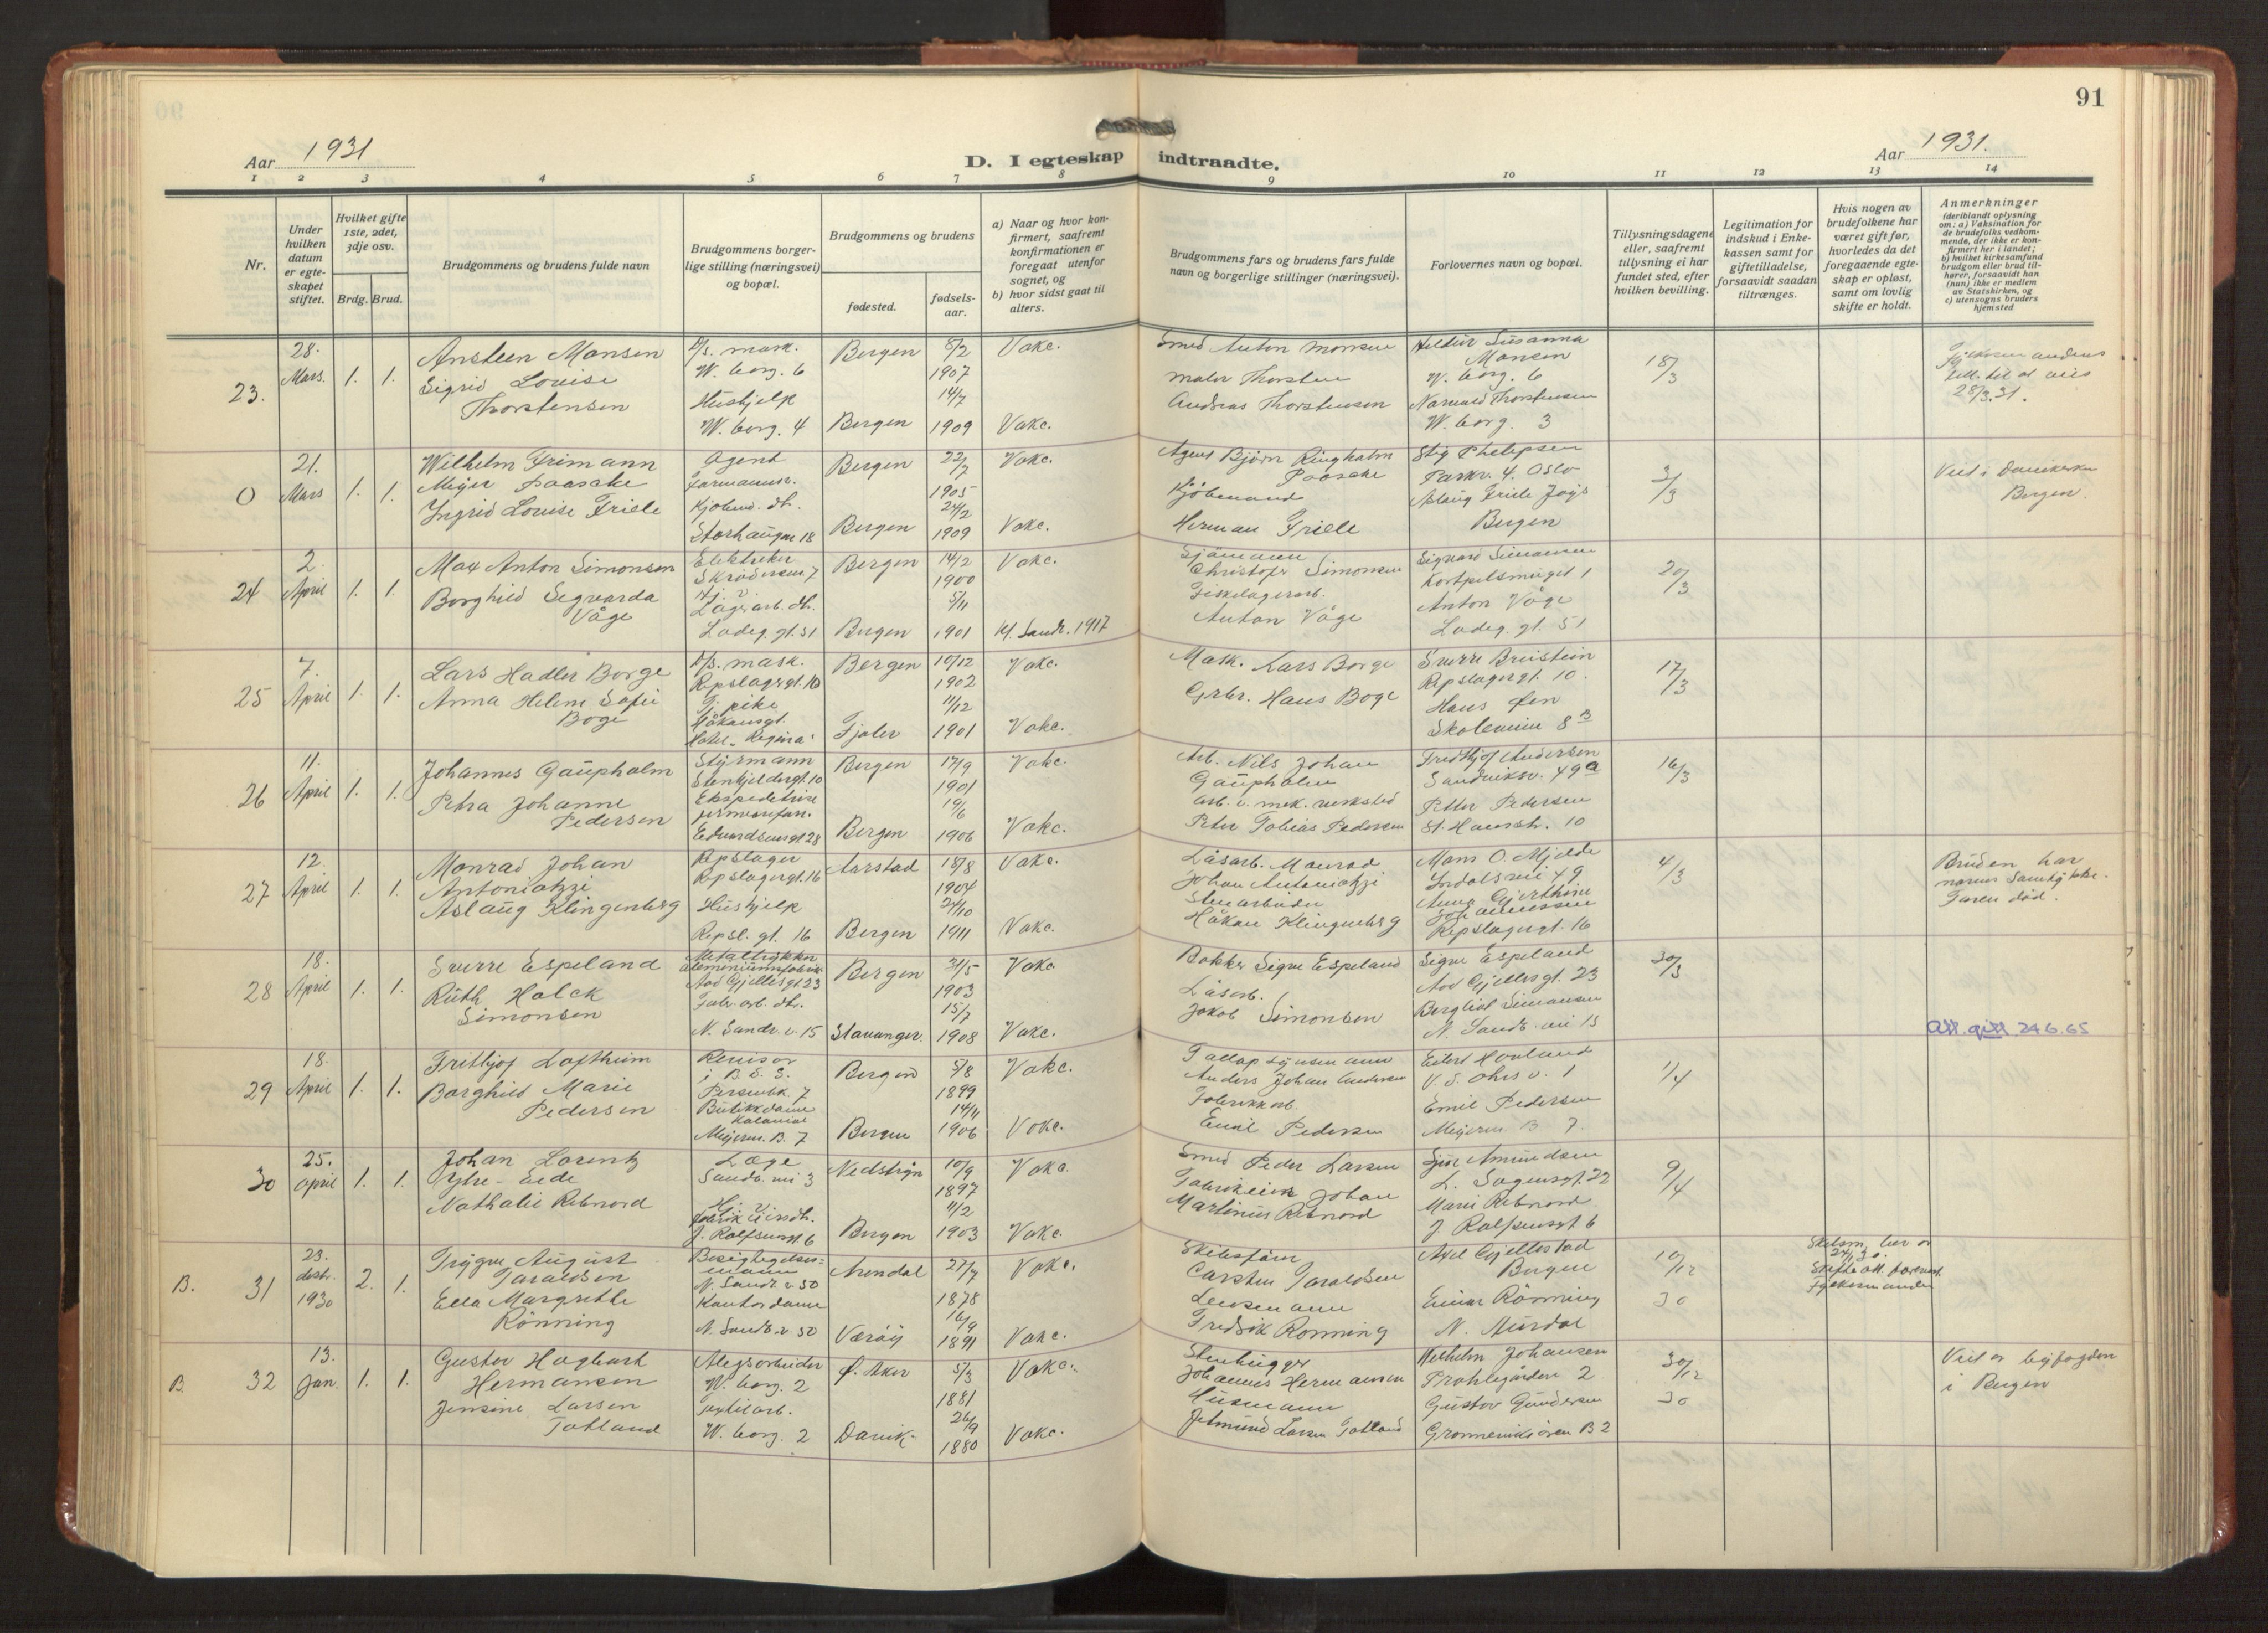 91
Aar 1931
D. I egteskap indtraadte.
Aar 1931.
1 2 3 4 5 6 7 8 9 10 11 12 13 14
Nr.
Under hvilken datum er egte-skapet stiftet.
Hvilket gifte 1ste, 2det, 3dje osv.
Brdg. Brud.
Brudgommens og brudens fulde navn
Brudgommens borger-lige stilling (næringsvei) og bopæl.
Brudgommens og brudens
fødested.
fødsels-aar.
a) Naar og hvor kon-firmert, saafremt konfirmationen er foregaat utenfor sognet, og
b) hvor sidst gaat til alters.
Brudgommens fars og brudens fars fulde navn og borgerlige stillinger (næringsvei).
Forlovernes navn og bopæl.
Tillysningsdagene eller, saafremt tillysning ei har fundet sted, efter hvilken bevilling.
Legitimation for indskud i Enke-kassen samt for giftetilladelse, forsaavidt saadan tiltrænges.
Hvis nogen av brudefolkene har været gift før, hvorledes da det foregaaende egte-skap er opløst, samt om lovlig skifte er holdt.
Anmerkninger
(deriblandt oplysning om: a) Vaksination for de brudefolks vedkom-mende, der ikke er kon-firmert her i landet; b) hvilket kirkesamfund brudgom eller brud til-hører, forsaavidt han (hun) ikke er medlem av Statskirken, og c) utensogns bruders hjemsted
23. 28. Mars. 1. 1.
Ansteen Monsen
Sigrid Louise
Thorstensen
D/s. mask.
W. borg. 6
Hushjelp
W. borg. 4
Bergen 8/2 1907 Vakc.
Bergen 14/7 1909 Vakc.
Smed Anton Monsen
Maler Thorsten
Andreas Thorstensen
Susanna
Monsen
W. borg. 6
Thorstensen
W. borg. 3
18/3
28/3.31.
0 21. Mars 1. 1.
Wilhelm Frimann
Meyer Paasche
Ingrid Louise Friele
Agent
Kjøbmd. dt.
Storhaugen 18
Bergen 22/7 1905 Vakc.
Bergen 24/2 1909 Vakc.
Agent Bjørn Ringholm
Paasche
Kjøbmand
Herman Friele
Stig Phelepsen
Parkv. 4. Oslo
Aslaug Friele
Bergen
3/3
Viet i Domkirken
Bergen.
24 2. April 1. 1.
Max Anton Simonsen
Borghild Segvarda
Våge
Elektriker
Skrødersm. 7
Hj. v.
Lagerarb. dt.
Ladeg. gt. 51
Bergen 14/2 1900 Vakc.
Bergen 5/11 1901 Kf. Sandv. 1917
Sjømann
Christofer Simonsen
Fiskelagerarb.
Anton Våge
Sigvard Simonsen
Kortpilsmuget 1
Anton Våge
Ladeg. gt. 51
20/3
25 7. April 1. 1.
Lars Hadler Borge
Anna Helene Sofie
Boge
D/s. mask.
Repslagergt. 10
Tj. pike
Håkonsgt.
Hotel "Regina"
Bergen 10/12 1902 Vakc.
Fjaler 11/12 1901 Vakc.
Mask. Lars Borge
Grbr. Hans Boge
Sverre Breistein
Repslagergt. 10.
Hans Øen
Skoleveien 8 B
17/3
26 11. April 1. 1.
Johannes Gaupholm
Petra Johanne
Pedersen
Styrmann
Stenkjeldergt. 10
Ekspeditrise
Edvardsensgt 28
Bergen 17/9 1901 Vakc.
Bergen 19/6 1906 Vakc.
Arb. Nils Johan
Gaupholm
Arb. v. mek. verksted
Peter Tobias Pedersen
Fredthjof Andersen
Sandviksv. 49a
Petter Pedersen
St. Hansstr. 10
16/3
27 12. April 1. 1.
Monrad Johan
Antoniazzi
Aslaug Klingenberg
Repslager
Repslagergt. 16
Hushjelp
Repsl. gt. 16
Aarstad 18/8 1904 Vakc.
Bergen 24/10 1911 Vakc.
Låsarb. Monrad
Johan Antoniazzi
Stenarbeider
Håkon Klingenberg
Mons O. Mjelde
49
Anna Gjerthine
Johannessen
Repslagergt. 16
4/3
Bruden har
Faren død.
28 18. April 1. 1.
Sverre Espeland
Ruth Holck
Simonsen
Metaltrykker
Aluminiumsfabrik
Aad Gjellesgt. 23
Fabr. arb. dt.
N. Sandv. v. 15
Bergen 31/5 1903 Vakc.
Stavanger. 15/7 1908 Vakc.
Bøkker Sigve Espeland
Låsarb.
Jakob Simonsen
Sigve Espeland
Aad Gjellesgt. 23
Bergliot Simonsen
N. Sandv. vei 15
30/3
Att. gitt 24.6.65
29 18. April 1. 1.
Frithjof Loftheim
Borghild Marie
Pedersen
Revisor
i B. D. S.
Persenbk. 7
Butikkdame
Kolonial
Meyerm. B. 7
Bergen 5/8 1899 Vakc.
Bergen 14/11 1906 Vakc.
Anders Johan Andersen
Fabrikkarb.
Emil Pedersen
Eilert Hovland
1
Emil Pedersen
Meyerm. B 7.
11/4
30 25. April 1. 1.
Johan Lorentz
Ytre-Eide
Nathalie Rebnord
Læge
Sandv. vei 3
Hj. v.
J. Rolfsensgt 6
Nedstryn 10/9 1897 Vakc.
Bergen 11/2 1903 Vakc.
Smed Peder Larsen
Fabrikeier Johan
Martinius Rebnord
Amundsen
L. Sagensgt. 22
Marie Rebnord
J. Rolfsensgt 6
9/4
B. 31 23. desbr. 1930 2. 1.
Trygve August
Taraldsen
Ella Margrethe
Rönning
Besigtigelses-
mann
N. Sandv. v. 50
Kontordame
N. Sandv. v 50
Arendal 27/7 1878 Vakc.
Værøy 16/9 1891 Vakc.
Skibsfører
Carsten Taraldsen
Lensmann
Fredrik Rönning
Axel Gjellestad
Bergen
Einar Rönning
N. Aurdal
10/12
30
Skifte att.
B. 32 13. Jan. 1. 1.
Gustav Hagbart
Hermansen
Jensine Larsen
Totland
Alegsarbeider
W. borg. 2
Textilarb.
W. borg. 2
Ø. Aker 5/3 1881 Vakc.
Davik 26/9 1880 Vakc.
Stenhugger
Johannes Hermansen
Husmann
Jetmund Larsen Totland
Wilhelm Johansen
Prahlegården 2
Gustav Gundersen
B 2
30/12
30
Viet av byfogden
i Bergen